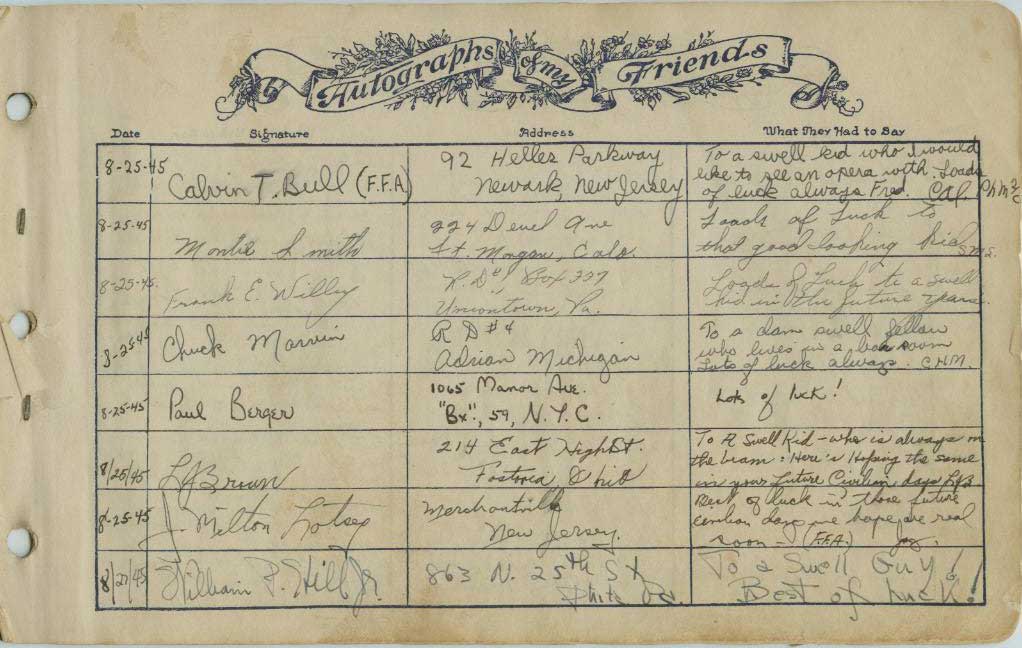 Autographs of my Friends
Date Signature Address What They Had to Say
8-25-45 Calvin T. Bull (F.F.A) 92 Heller Parkway
Newark, New Jersey
To a swell kid who I would
like to see an opera with. Loads
of luck always Fred. Cal. PhM 2/c
8-25-45 Montie Smith 224 Deuel Ave
Ft. Morgan, Colo.
Loads of Luck to
that good looking kid
8-25-45. Frank E. Willy R.D. #1, Box 337
Uniontown, Pa.
Loads of Luck to a swell
kid in the future years.
8-25-45 Chuck Marvin R D #4
Adrian Michigan
To a dam swell fellow
who lives in a room
Lots of luck always. C.H.M.
8-25-45 Paul Berger 1065 Manor Ave.
"Bx", 59, N.Y.C.
Lots of luck!
8/25/45 LJBrown 214 East High St.
Fostoria, Ohio
To A Swell Kid - who is always on
the beam: Here's Hoping the same
in your Future Civilian days LJB
8-25-45 J. Milton Lotsey Merchantville
New Jersey.
Best of luck in those future
civilian days we hope are real
soon - (F.F.A.)
8/27/45 William P. Hill Jr. 863 N. 25th St
Phila Pa.
To a Swell Guy!
Best of Luck!